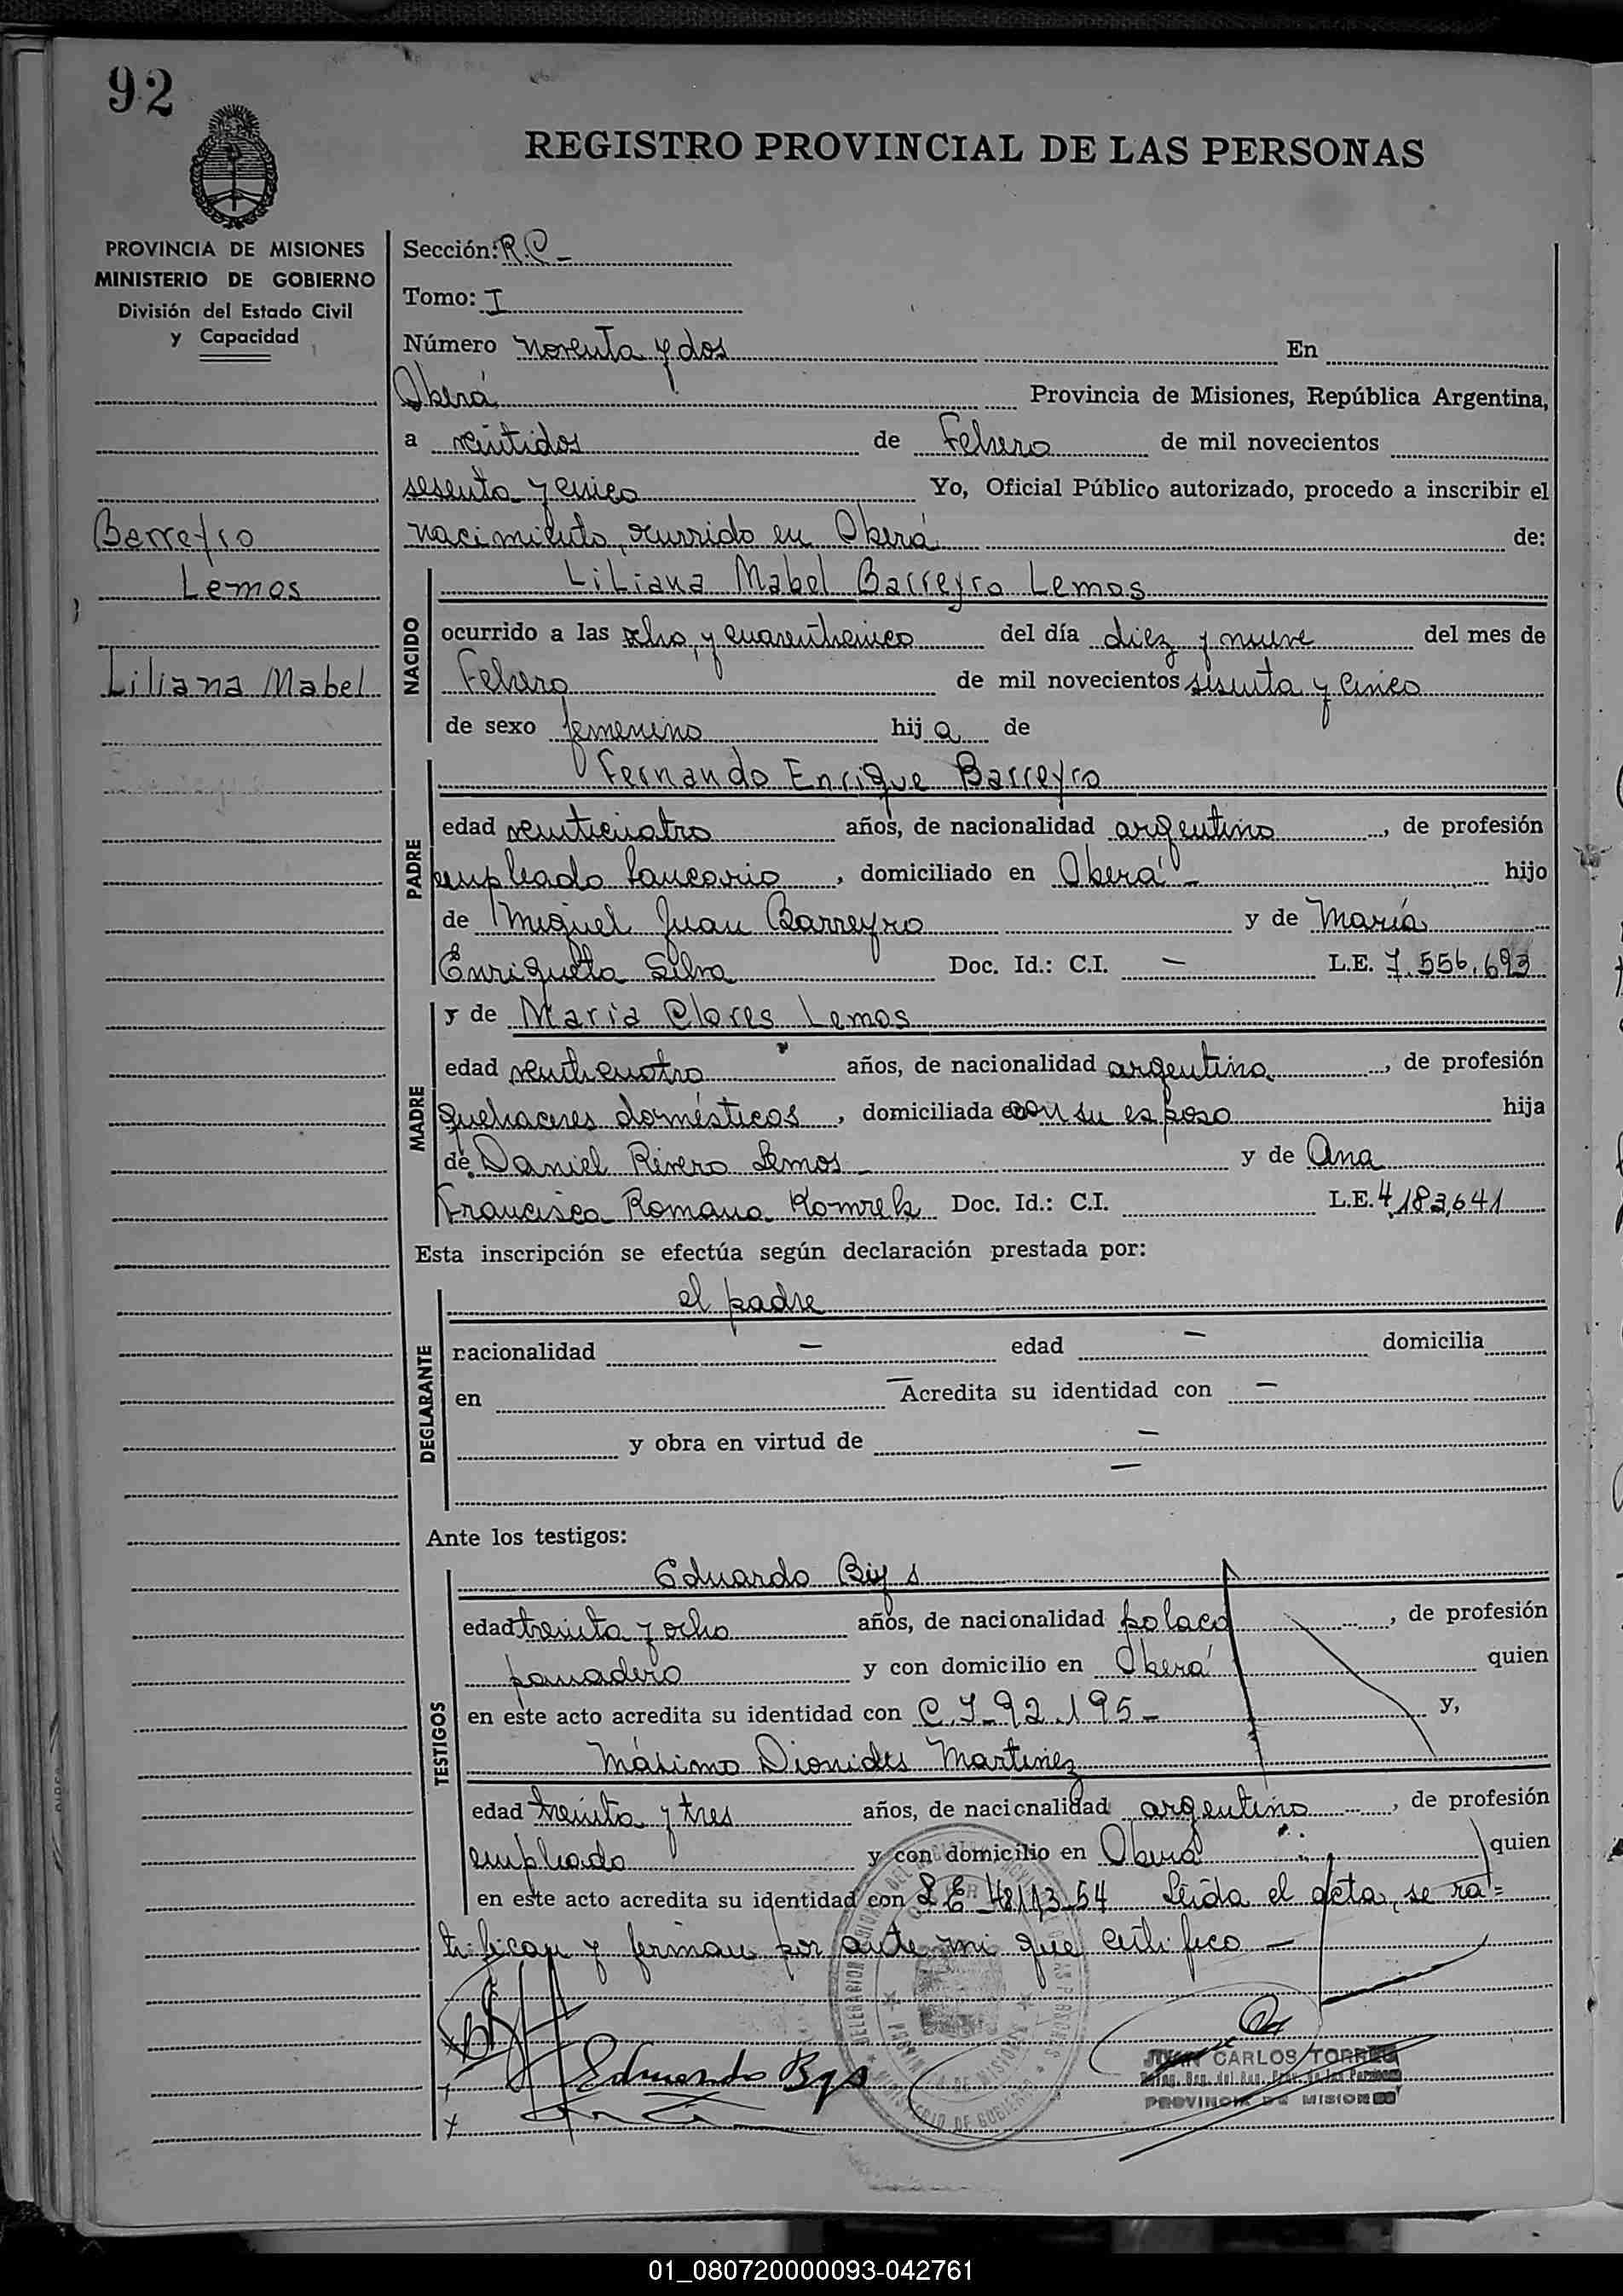 92
REGISTRO PROVINCIAL DE LAS PERSONAS
PROVINCIA DE MISIONES
MINISTERIO DE GOBIERNO
División del Estado Civil
y Capacidad
Barreyro
Lemos
Liliana Mabel
Sección: R.C -
Tomo: I
Número noventa y dos En
Oberá Provincia de Misiones, República Argentina,
a veintidos de Febrero de mil novecientos
sesenta y cinco Yo, Oficial Público autorizado, procedo a inscribir el
nacimiento, ocurrido en Oberá de:
NACIDO
Liliana Mabel Barreyro Lemos
ocurrido a las ocho y cuarenticinco del día diez y nueve del mes de
Febrero de mil novecientos sesenta y cinco
de sexo femenino hija de
PADRE
Fernando Enrique Barreyro
edad veinticuatro años, de nacionalidad argentino, de profesión
empleado bancario, domiciliado en Oberá - hijo
de Miguel Juan Barreyro y de María
Enriqueta Silva Doc. Id.: C.I. - L.E. 7.556.693
MADRE
y de Maria Clores Lemos
edad veinticuatro años, de nacionalidad argentina, de profesión
quehaceres domésticos, domiciliada con su esposo hija
de Daniel Rivero Lemos - y de Ana
Francisca Romana Komrek Doc. Id.: C.I. L.E. 4.183,641
Esta inscripción se efectúa según declaración prestada por:
DECLARANTE
el padre
nacionalidad - edad - domicilia
en - Acredita su identidad con -
y obra en virtud de -
-
Ante los testigos:
TESTIGOS
Eduardo Bys
edad treinta y ocho años, de nacionalidad polaco, de profesión
panadero y con domicilio en Oberá quien
en este acto acredita su identidad con C.I. 92.195 - y,
Máximo Dionides Martinez
edad treinta y tres años, de nacionalidad argentino, de profesión
empleado y con domicilio en Oberá quien
en este acto acredita su identidad con L E Leida el acta, se ra=
tifican y firman por ante mi que certifico -
Eduardo Bys
JUAN CARLOS TORRES
PROVINCIA DE MISIONES
01_080720000093-042761